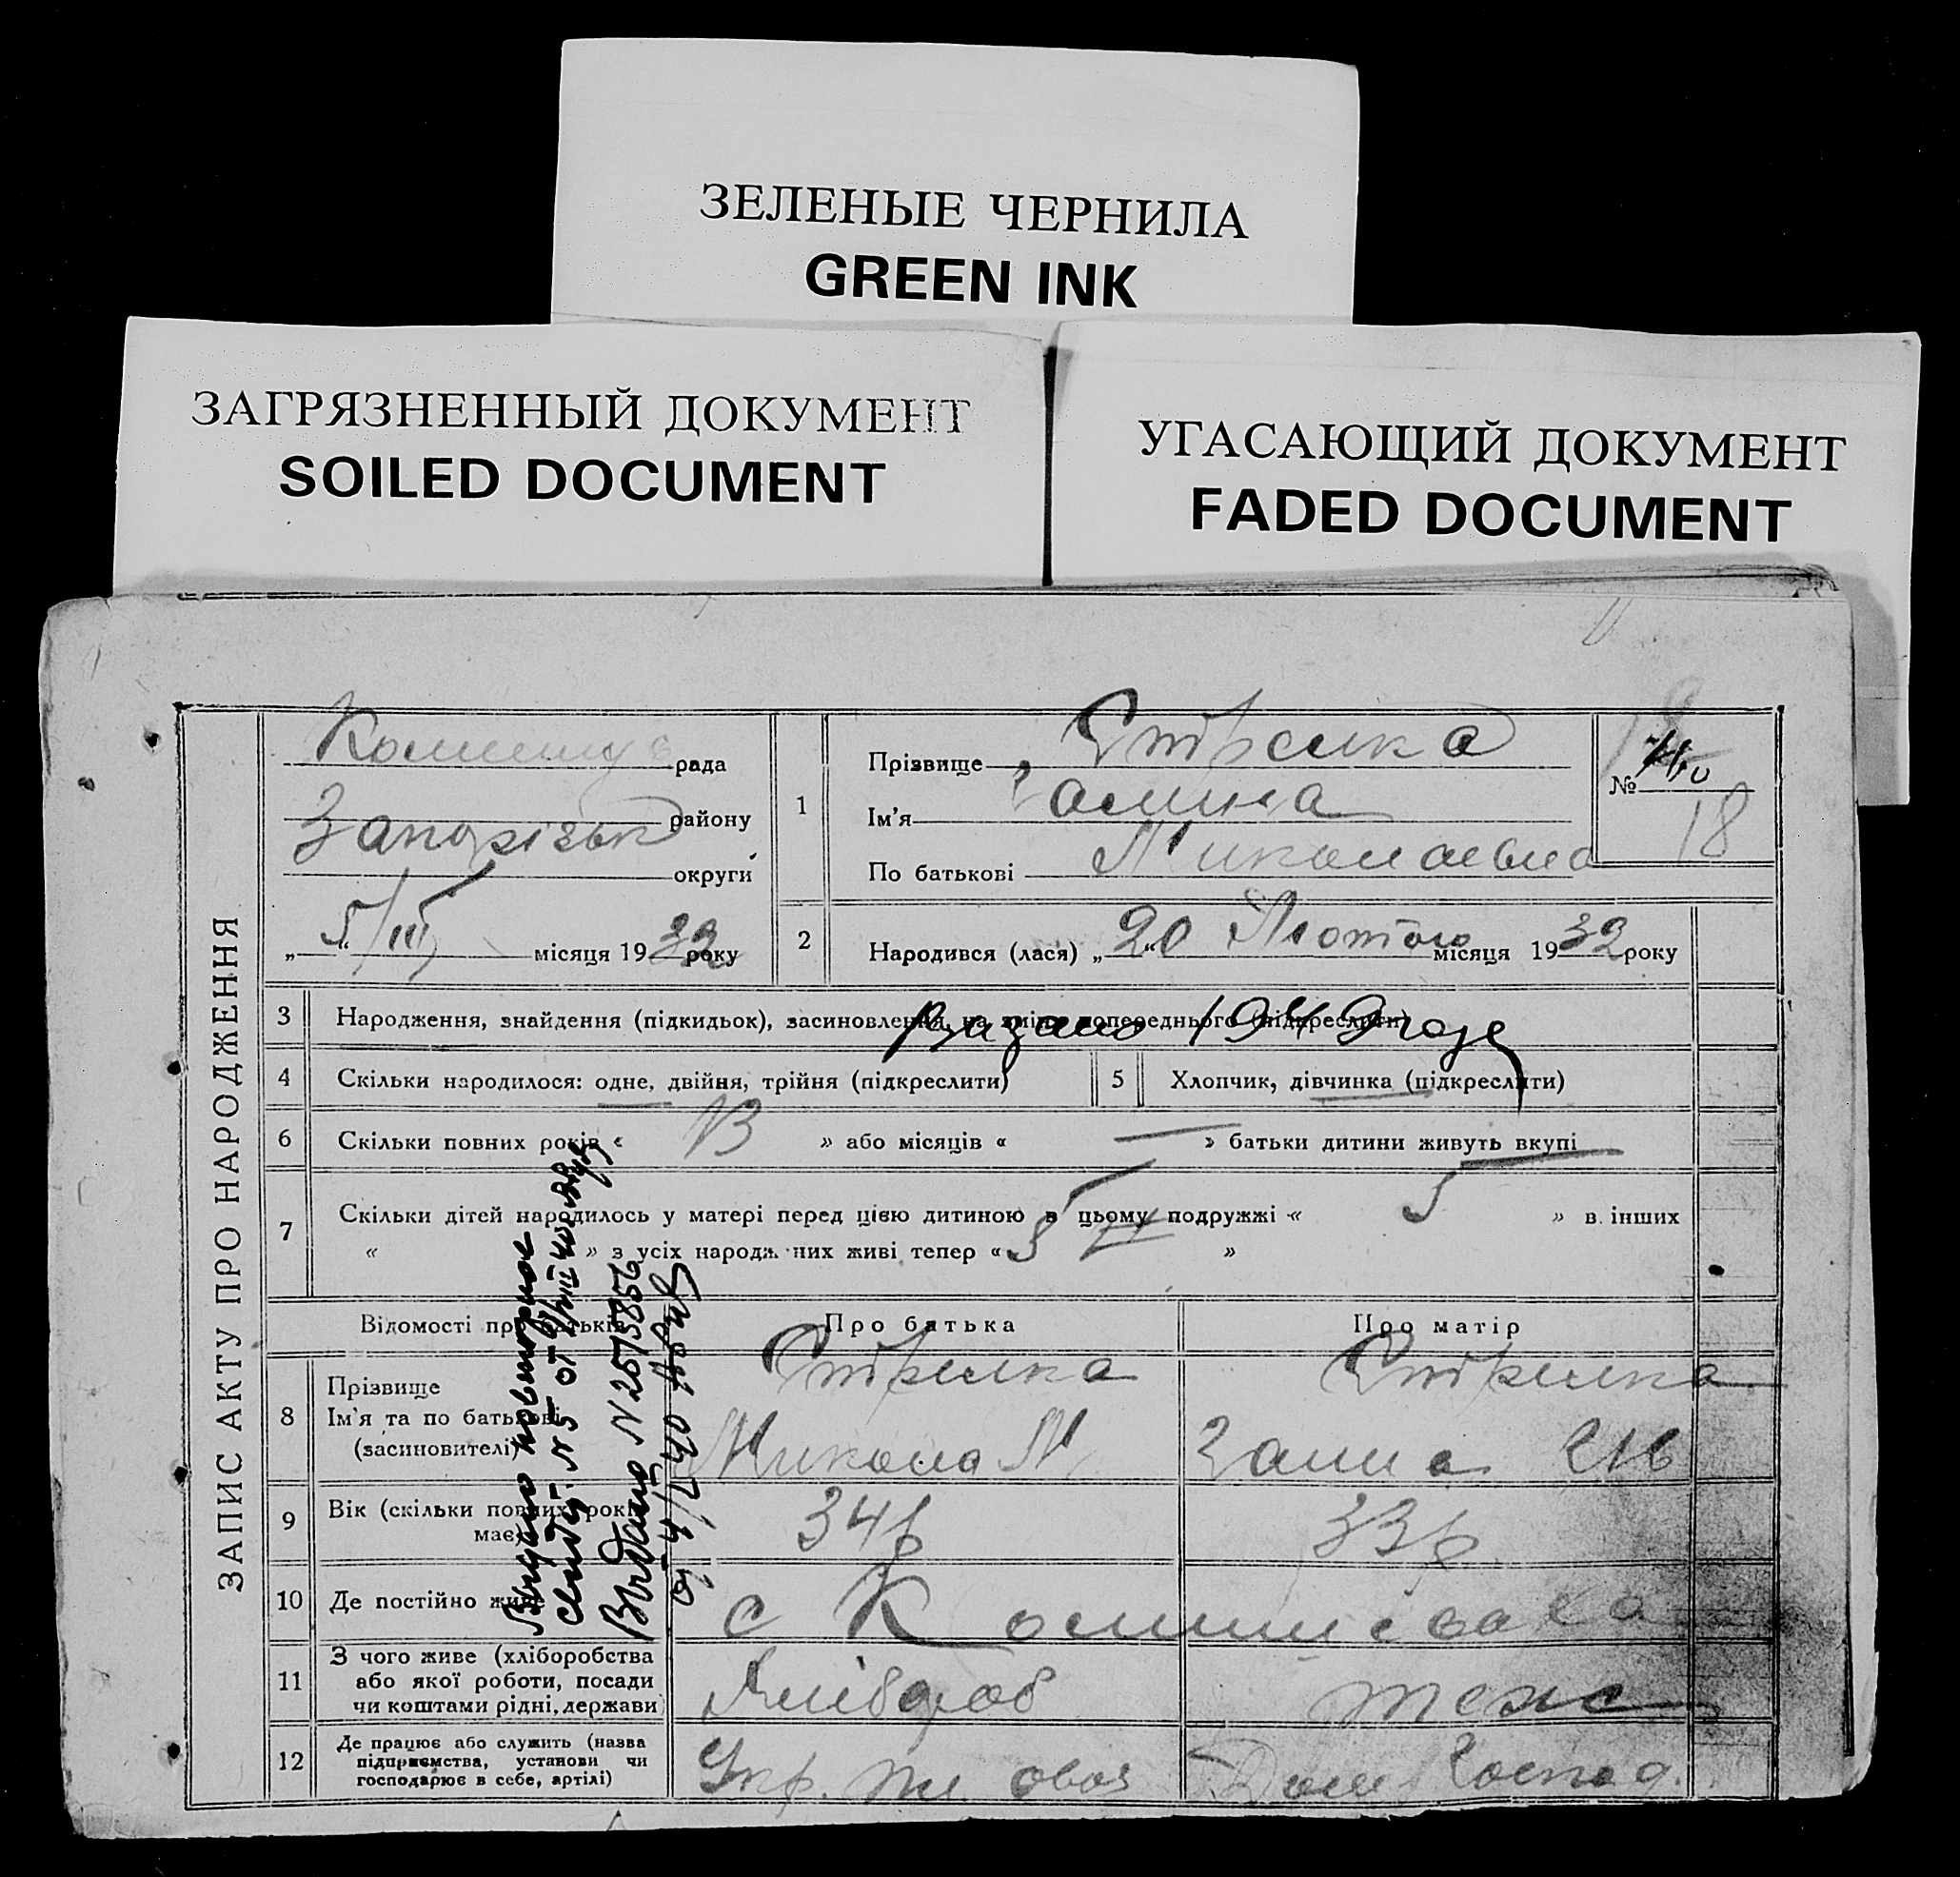 ЗЕЛЕНЫЕ ЧЕРНИЛА
GREEN INK
ЗАГРЯЗНЕННЫЙ ДОКУМЕНТ
SOILED DOCUMENT
УГАСАЮЩИЙ ДОКУМЕНТ
FADED DOCUMENT
ЗАПИС АКТУ ПРО НАРОДЖЕННЯ
рада
району
округи
5/III місяця 1932 року
1
Прізвище
Ім'я Галина
По батькові Николаевна
№
18
2 Народився (лася) „20“ Лютого місяця 1932 року
3 Народження, знайдення (підкидьок), засиновлення, на зміну попереднього (підкреслити)
1949
4 Скільки народилося: одне, двійня, трійня (підкреслити)
5 Хлопчик, дівчинка (підкреслити)
6 Скільки повних років « 13 » або місяців « — » батьки дитини живуть вкупі
7 Скільки дітей народилось у матері перед цією дитиною в цьому подружжі « 5 » в інших
« » з усіх народжених живі тепер « 5 »
Відомості про батьків
Про батька
Про матір
8 Прізвище
Ім'я та по батькові
(засиновителі)
Микола М
Ганна
9 Вік (скільки повних років
має)
34 р
33 р
10 Де постійно живе
с
11 З чого живе (хліборобства
або якої роботи, посади
чи коштами рідні, держави)
Хлібороб
теж
12 Де працює або служить (назва
підприємства, установи чи
господарює в себе, артілі)
Дом Господ.
Видано повторное
свид. N5 от
Видано N 2575856